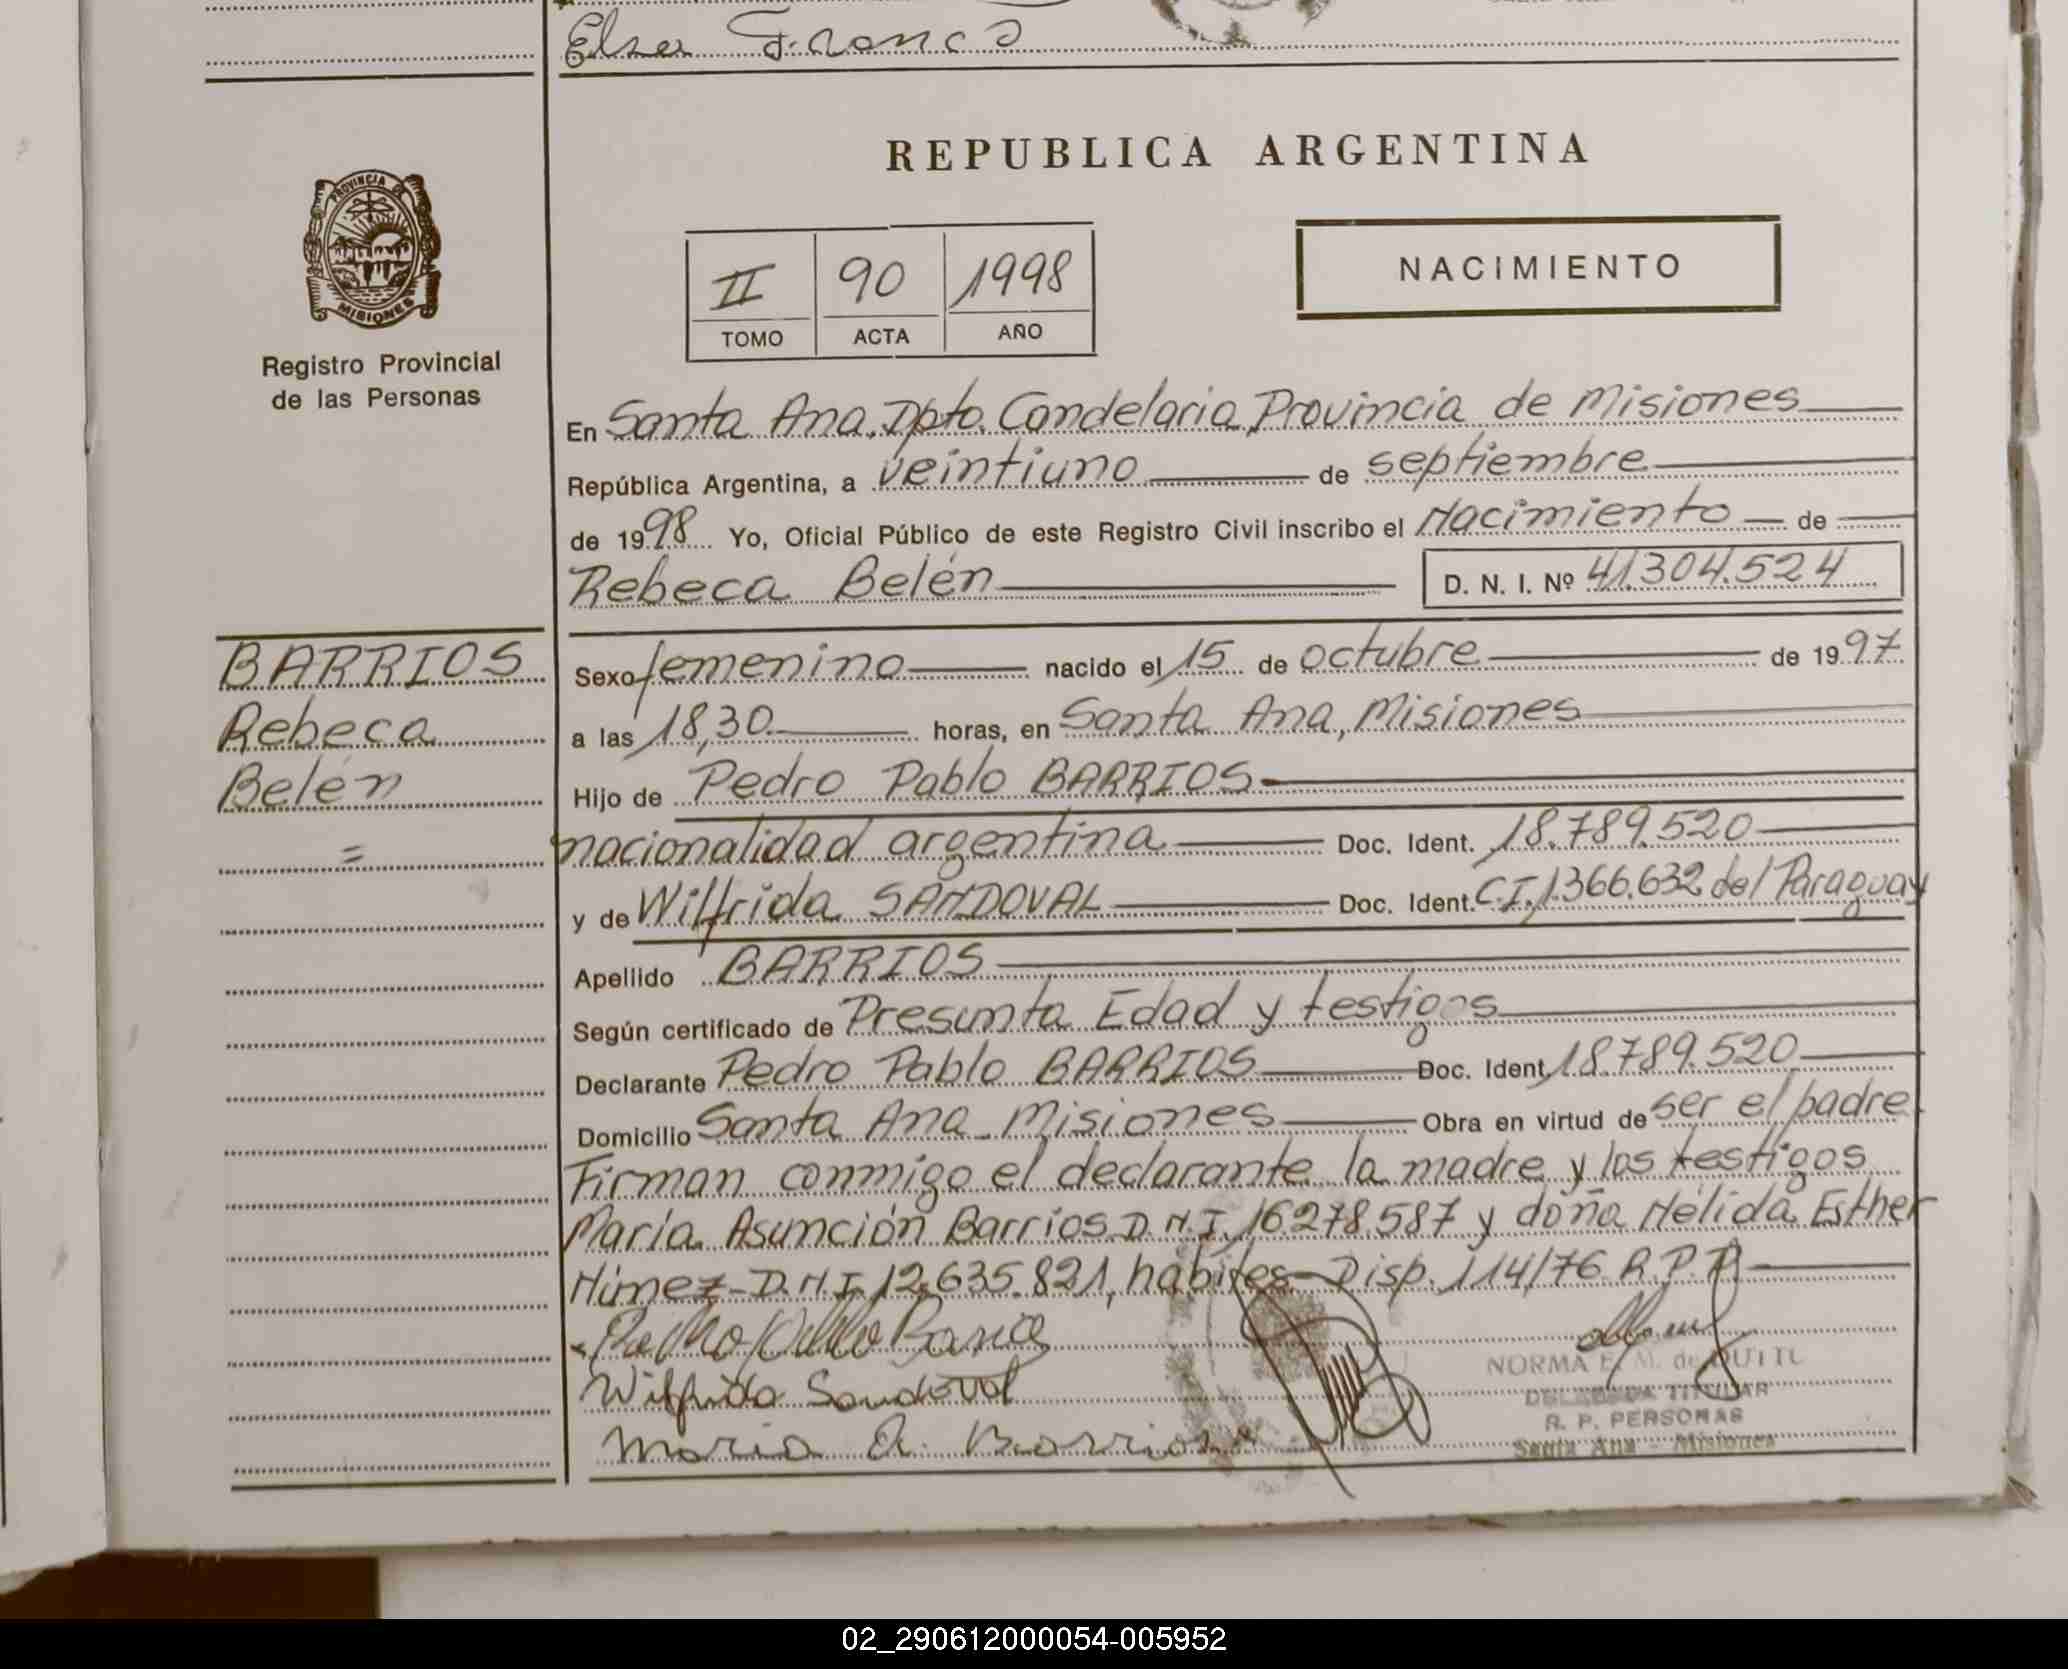 Elsa Franco
PROVINCIA DE
MISIONES
Registro Provincial
de las Personas
REPUBLICA ARGENTINA
II 90 1998
TOMO ACTA AÑO
NACIMIENTO
En Santa Ana, Dpto. Candelaria, Provincia de Misiones
República Argentina, a veintiuno de septiembre
de 1998 Yo, Oficial Público de este Registro Civil inscribo el Nacimiento de
Rebeca Belén D. N. I. Nº 41.304.524
BARRIOS
Rebeca
Belén
=
Sexo femenino nacido el 15 de octubre de 1997
a las 18,30 horas, en Santa Ana, Misiones
Hijo de Pedro Pablo BARRIOS
nacionalidad argentina Doc. Ident. 18.789.520
y de Wilfrida SANDOVAL Doc. Ident. C.I. 1.366.632 del Paraguay
Apellido BARRIOS
Según certificado de Presunta Edad y testigos
Declarante Pedro Pablo BARRIOS Doc. Ident. 18.789.520
Domicilio Santa Ana Misiones Obra en virtud de ser el padre
Firman conmigo el declarante la madre y los testigos
María Asunción Barrios D.N.I. 16.278.587 y doña Nélida Esther
Núnez-D.N.I. 12.635.821, hábiles-Disp. 114/76 R.P.P.
Pedro Pablo Barrios
Wilfrida Sandoval
Maria A. Barrios
NORMA E. M. de
DELEGADA TITULAR
R. P. PERSONAS
Santa Ana - Misiones
02_290612000054-005952